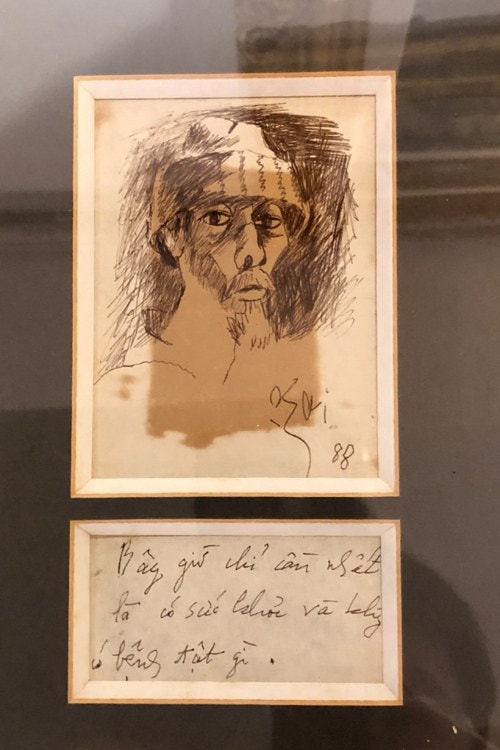 Phái
88
Bây giờ chỉ cần nhất
là có sức khỏe và không
có bệnh tật gì.